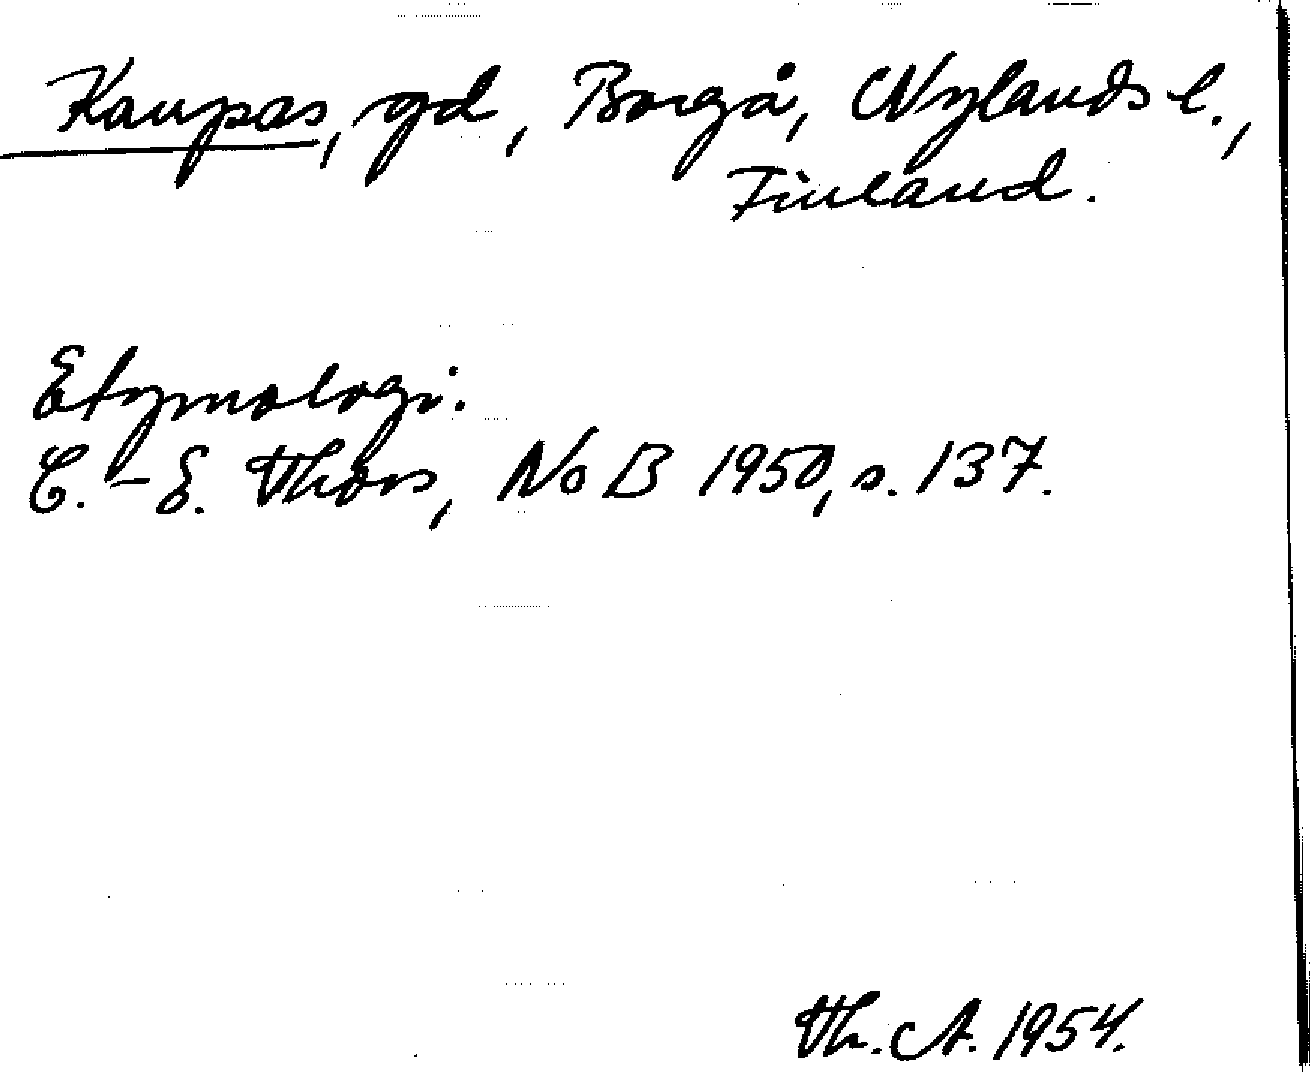 Kaupas, gd, Borgå, Nylands l.,
Finland.
Etymologi:
C.-E. Thors, NoB 1950, s. 137.
Th. A. 1954.